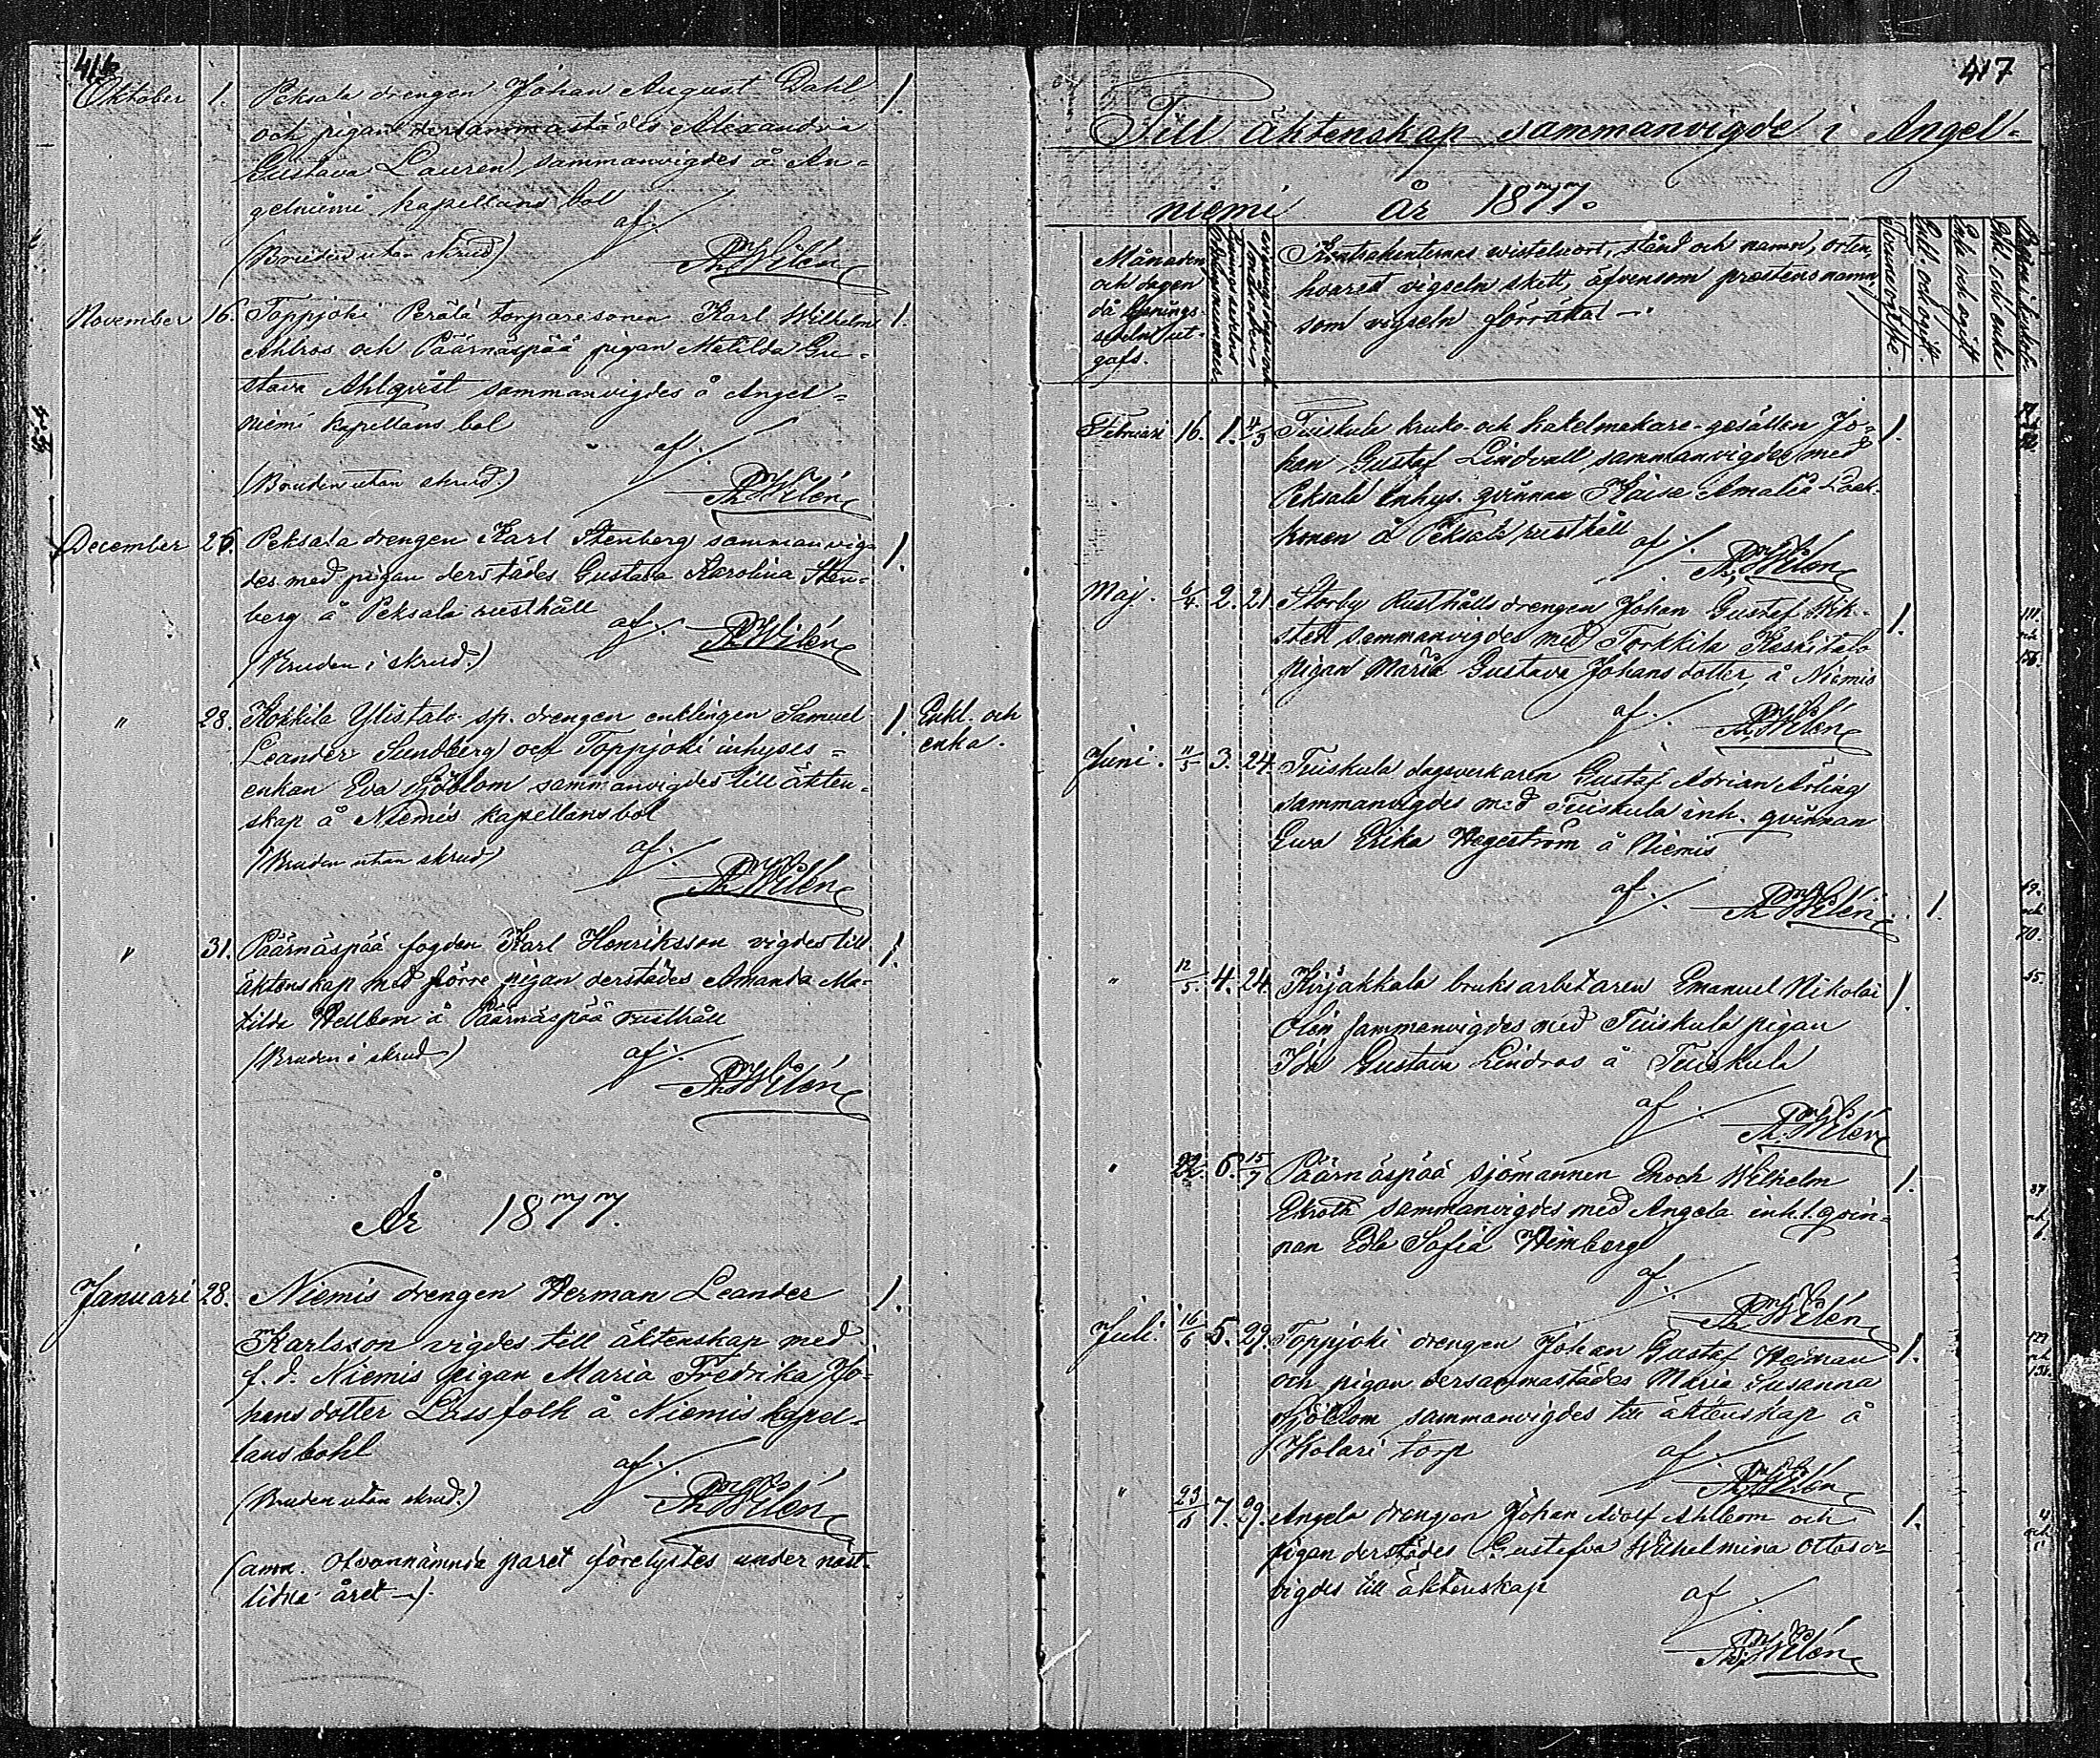 416
Oktober 1. Peksala drengen Johan August Dahl 1.
och pigan dersammastädes Alexandra
Gustava Lauren, sammanvigdes å An=
gelniemi kapellans bol
af.
(Bruden utan skrud) Wilén
November 16. Toppjoki Perälä torparesonen Karl Wilhelm 1.
Ahlros och Päärnäspää pigan Matilda Gu=
stava Ahlqvist sammanvigdes å Angel=
niemi kapellans bol
af.
(Bruden utan skrud.) Wilén
December 26. Peksala drengen Karl Stenberg sammanvig= 1.
des med pigan derstädes Gustava Karolina Sten=
berg å Peksala rusthåll
af. Wilén
(Bruden i skrud.)
" 28. Kokkila Ylistalo sp. drengen enklingen Samuel 1. Enkl. och
Leander Sundberg och Toppjoki inhyses= enka.
enkan Eva Sjöblom sammanvigdes till äkten=
skap å Niemis kapellansbol
(Bruden utan skrud) af.
Wilén
" 31. Päärnäspää fogden Karl Henriksson vigdes till 1.
äktenskap med förre pigan derstädes Amanda Ma=
tilda Hellbom å Päärnäspää rusthåll
(Bruden i skrud) af.
Wilén
År 1877.
Januari 28. Niemis drengen Herman Leander 1.
Karlsson vigdes till äktenskap med
f. d. Niemis pigan Maria Fredrika Jo=
hansdotter Lassfolk å Niemis kapel=
lansbohl
af.
(Bruden utan skrud.) Wilén
(anm. Ofvannämnda paret förelystes under näst=
lidna året —).
417
Till äktenskap sammanvigde i Angel=
niemi år 1877.
Månaden
och dagen
då lysnings
sedeln ut-
gafs.
Kontrahenternas vistelseort, stånd och namn, orten,
hvarest vigseln skett, äfvensom prestens namn,
som vigseln förrättat —.
Enkl. och ogift.
Enka och ogift
Enkl. och enka
Februari 16. 1. 4/3 Tuiskula kruk- och kakelmakare-gesällen Jo= 1.
han Gustaf Lindvall sammanvigdes med
Peksala inhys. qvinnan Kaisa Amalia
å Peksala rusthåll
af. Wilén
Maj. 6/4 2. 21. Storby Rusthålls drengen Johan Gustaf Wik= 1.
stedt sammanvigdes med Torkkila Keskitalo
pigan Maria Gustava Johansdotter, å Niemis
af. Wilén
Juni. 11/5 3. 24. Tuiskula dagsverkaren Gustaf Adrian Arling
sammanvigdes med Tuiskula inh. qvinnan
Eva Erika Hegeström å Niemis
af. Wilén 1.
" 12/5 4. 24. Kirjakkala bruksarbetaren Emanuel Nikolai 1.
Olén sammanvigdes med Tuiskula pigan
Ida Gustava Lindros å Tuiskula
af. Wilén
" 22. 6. 15/7 Päärnäspää sjömannen Enoch Wilhelm 1.
Ekroth sammanvigdes med Angela inh. qvin=
nan Eda Sofia Wimberg
af. Wilén
Juli. 16/6 5. 29. Toppjoki drengen Johan Gustaf Heiman 1.
och pigan dersammastädes Maria Susanna
Sjöblom sammanvigdes till äktenskap å
Kolari torp af.
Wilén
" 23/6 7. 29. Angela drengen Johan Adolf Ahlbom och 1.
pigan derstädes Gustafva Wilhelmina
vigdes till äktenskap
af
Wilén